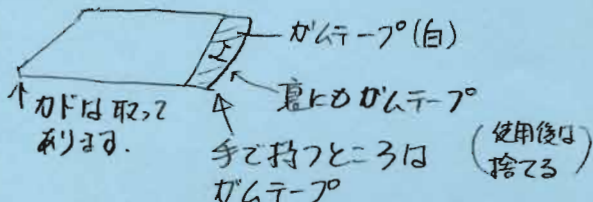 ガムテープ(白)
裏にもガムテープ
カドは取って
あります.
手で持つところは
ガムテープ
(使用後は
捨てる)